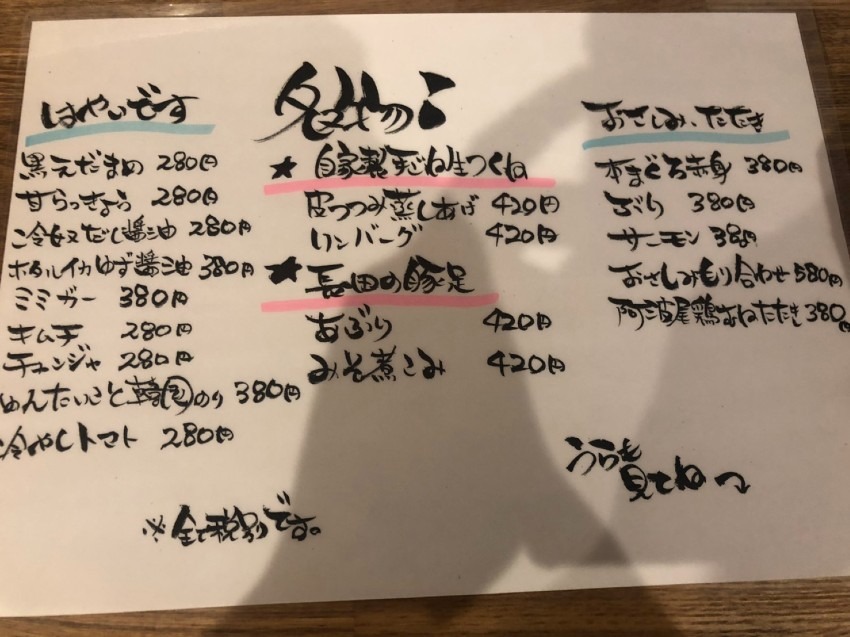 はやいです
黒えだまめ 280円
甘らっきょう 280円
冷奴だし醤油 280円
ホタルイカゆず醤油 380円
ミミガー 380円
キムチ 280円
チャンジャ 280円
めんたいこと韓国のり 380円
冷やしトマト 280円
※全て税別です。
名物!
★ 自家製手ごね生つくね
皮つつみ蒸しあげ 420円
リンバーグ 420円
★ 長田の豚足
あぶり 420円
みそ煮こみ 420円
おさしみ、たたき
本まぐろ赤身 380円
ぶり 380円
サーモン 380円
おさしみもり合わせ 580円
阿波尾鶏むねたたき 380円
うらも
見てね